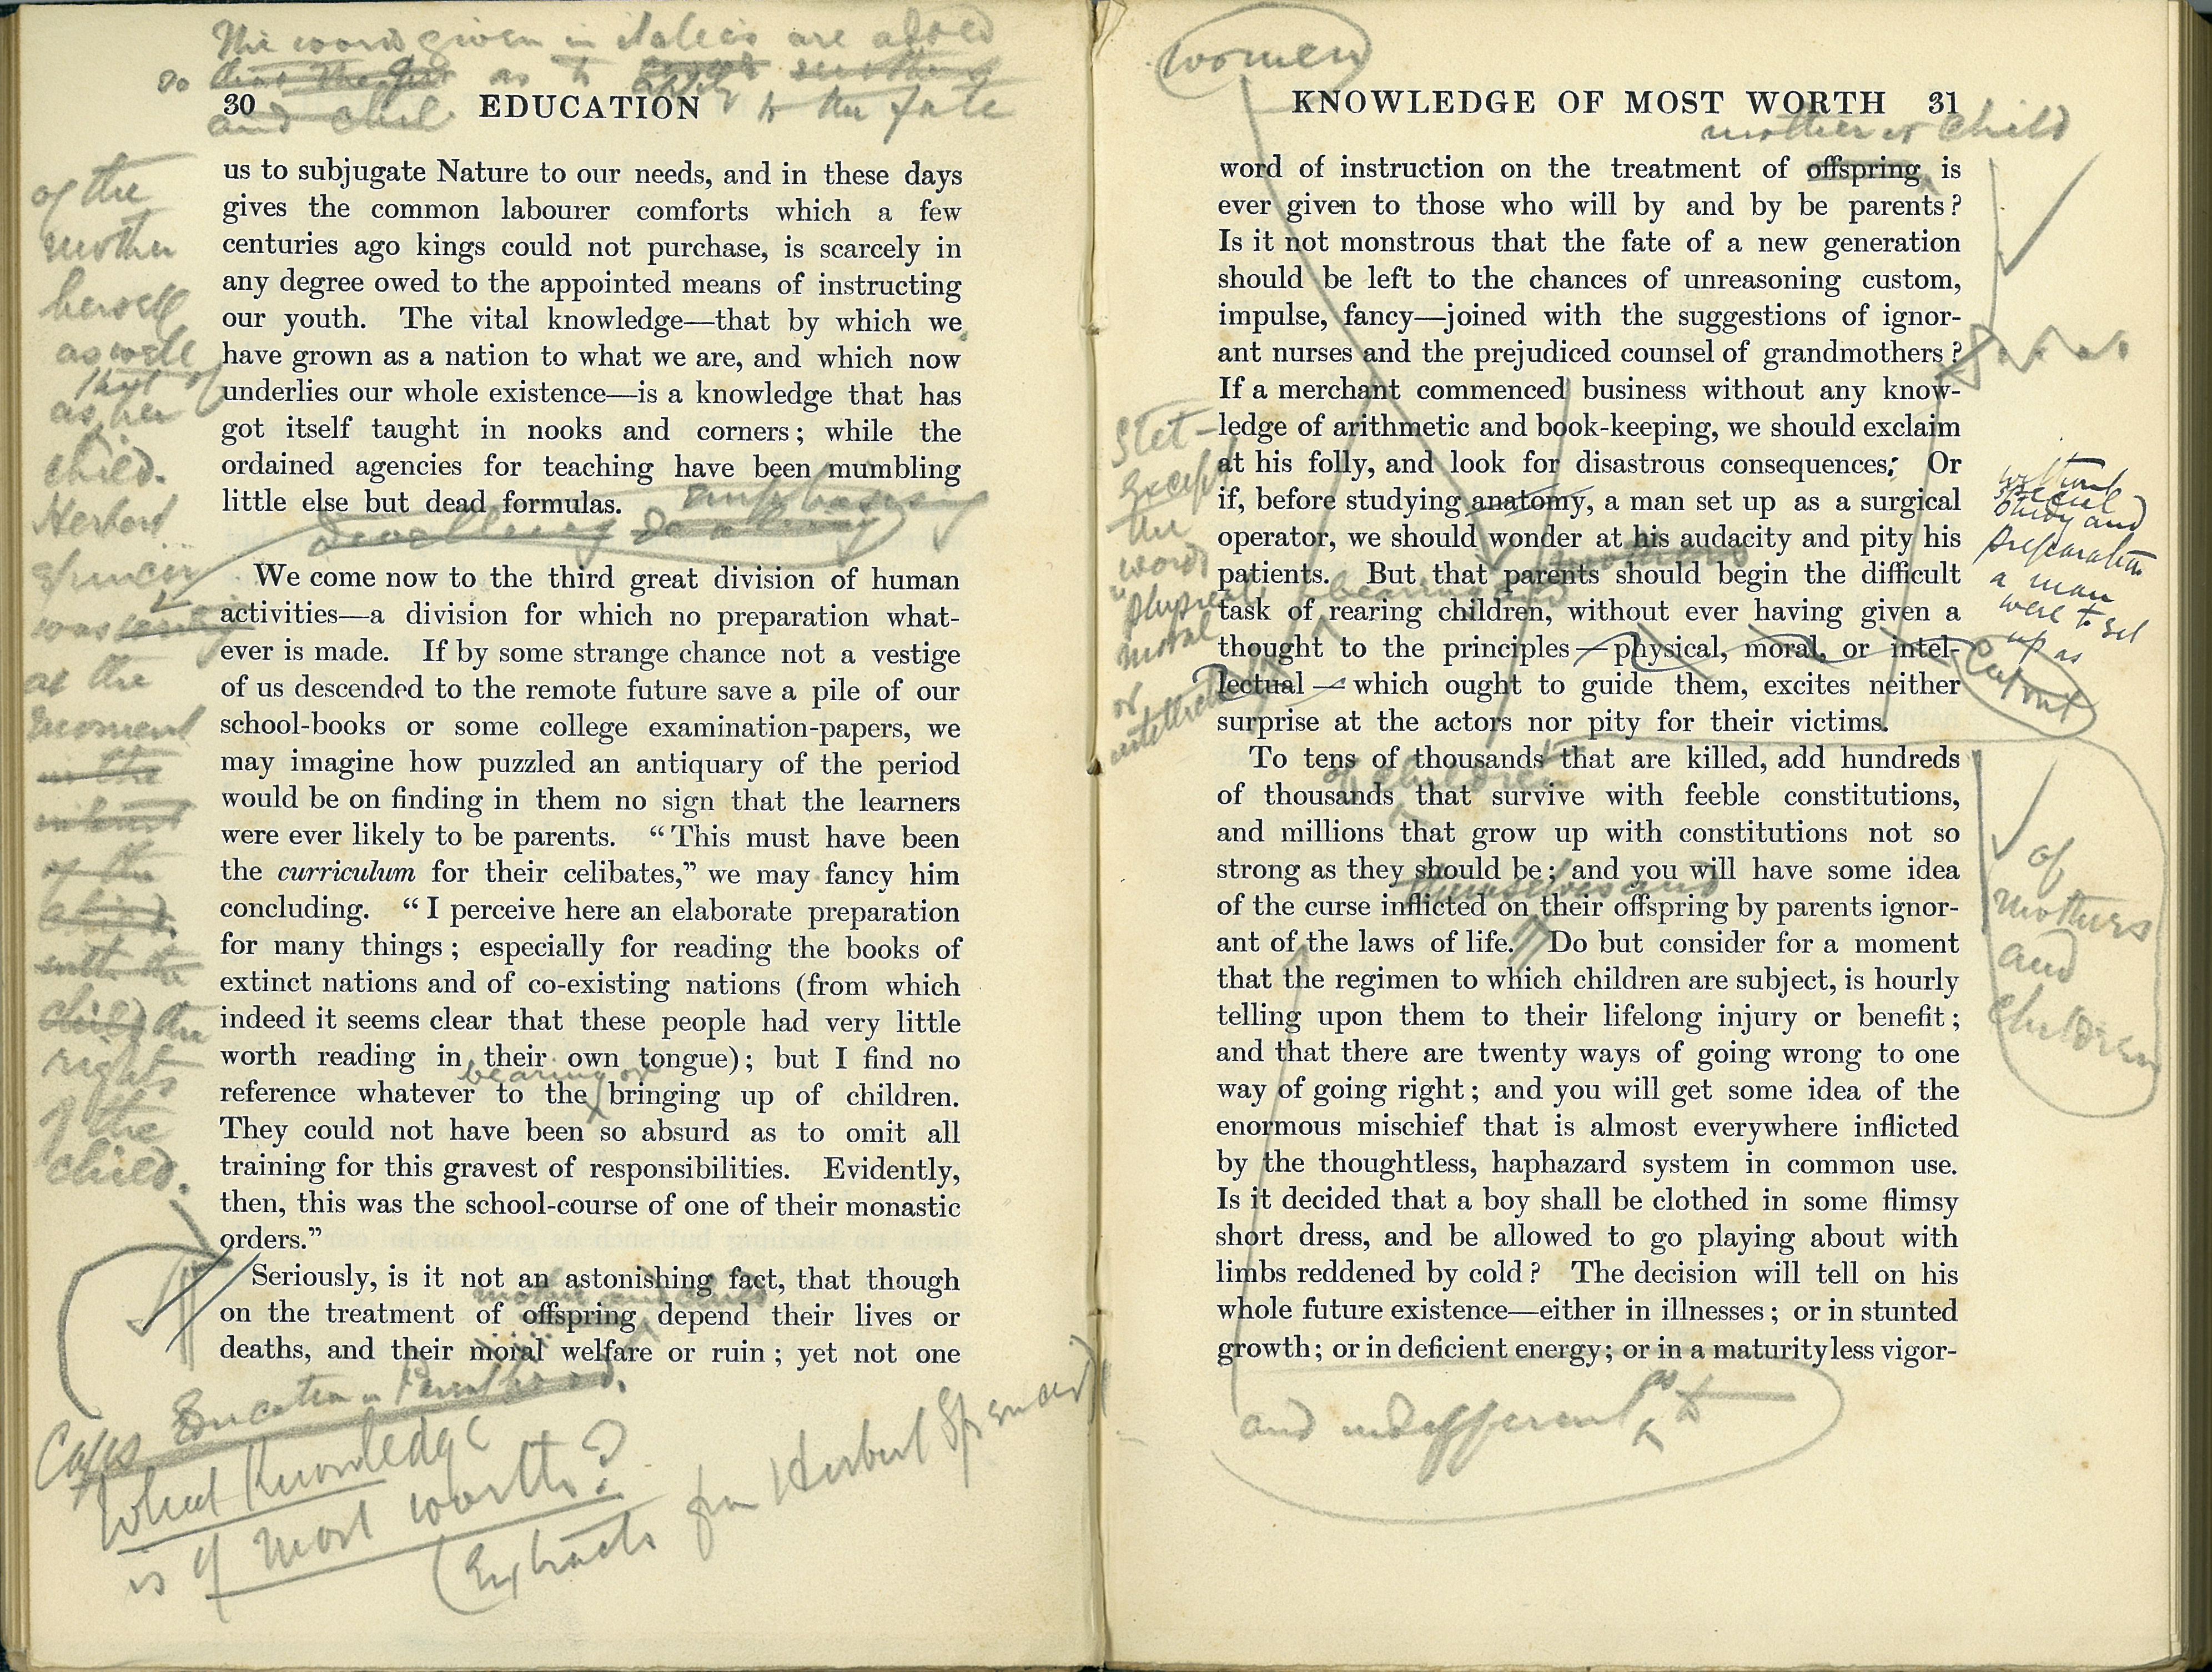 The words given in italics are added
so as to apply to the fate
30 EDUCATION
of the
mother
herself
as well
that of
as her
child.
Herbert
Spencer
was
at the
moment
in the
interest
of the
child
with the
child the
rights
of the
child.
us to subjugate Nature to our needs, and in these days
gives the common labourer comforts which a few
centuries ago kings could not purchase, is scarcely in
any degree owed to the appointed means of instructing
our youth. The vital knowledge—that by which we
have grown as a nation to what we are, and which now
underlies our whole existence—is a knowledge that has
got itself taught in nooks and corners; while the
ordained agencies for teaching have been mumbling
little else but dead formulas.
emphasising
dwelling dealing
We come now to the third great division of human
activities—a division for which no preparation what-
ever is made. If by some strange chance not a vestige
of us descended to the remote future save a pile of our
school-books or some college examination-papers, we
may imagine how puzzled an antiquary of the period
would be on finding in them no sign that the learners
were ever likely to be parents. “This must have been
the curriculum for their celibates,” we may fancy him
concluding. “I perceive here an elaborate preparation
for many things; especially for reading the books of
extinct nations and of co-existing nations (from which
indeed it seems clear that these people had very little
worth reading in their own tongue); but I find no
bearing or
reference whatever to the bringing up of children.
They could not have been so absurd as to omit all
training for this gravest of responsibilities. Evidently,
then, this was the school-course of one of their monastic
orders.”
Seriously, is it not an astonishing fact, that though
mother and child
on the treatment of offspring depend their lives or
deaths, and their moral welfare or ruin; yet not one
Education in Parenthood.
Caps
What Knowledge
is of most worth?
(Extracts from Herbert Spencer)
women
KNOWLEDGE OF MOST WORTH 31
mother or child
word of instruction on the treatment of offspring is
ever given to those who will by and by be parents?
Is it not monstrous that the fate of a new generation
should be left to the chances of unreasoning custom,
impulse, fancy—joined with the suggestions of ignor-
ant nurses and the prejudiced counsel of grandmothers?
If a merchant commenced business without any know-
ledge of arithmetic and book-keeping, we should exclaim
at his folly, and look for disastrous consequences: Or
if, before studying anatomy, a man set up as a surgical
operator, we should wonder at his audacity and pity his
mothers
patients. But that parents should begin the difficult
bearing and
task of rearing children, without ever having given a
thought to the principles—physical, moral, or intel-
lectual—which ought to guide them, excites neither
surprise at the actors nor pity for their victims.
Stet—
except
the
words
"physical
moral
or
intellectual
without
special
study and
preparation
a man
were to set
up as
To tens of thousands that are killed, add hundreds
of children
of thousands that survive with feeble constitutions,
and millions that grow up with constitutions not so
strong as they should be; and you will have some idea
themselves and
of the curse inflicted on their offspring by parents ignor-
ant of the laws of life. Do but consider for a moment
that the regimen to which children are subject, is hourly
telling upon them to their lifelong injury or benefit;
and that there are twenty ways of going wrong to one
way of going right; and you will get some idea of the
enormous mischief that is almost everywhere inflicted
by the thoughtless, haphazard system in common use.
Is it decided that a boy shall be clothed in some flimsy
short dress, and be allowed to go playing about with
limbs reddened by cold? The decision will tell on his
whole future existence—either in illnesses; or in stunted
growth; or in deficient energy; or in a maturity less vigor-
of
mothers
and
children
and indifferent as to